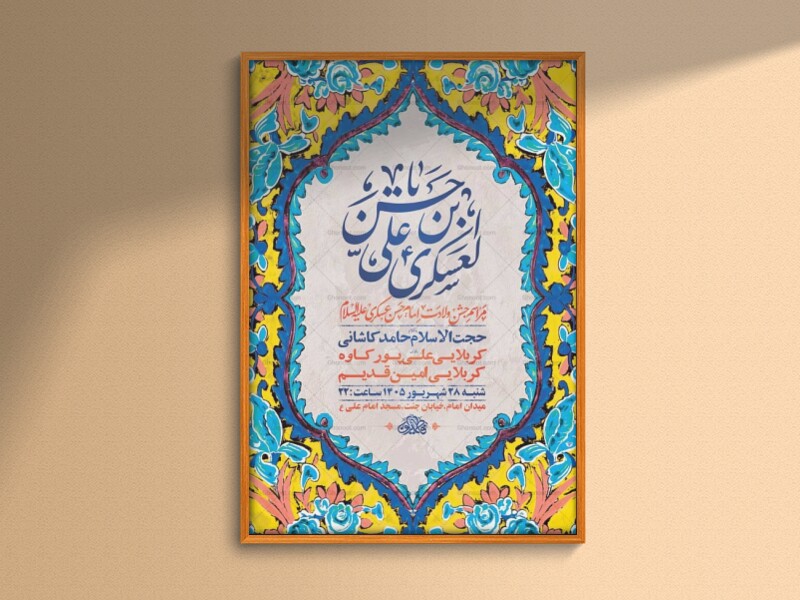 یا حسن بن علی العسکری
مراسم جشن ولادت امام حسن عسکری علیه السلام
حجت الاسلام حامد کاشانی
کربلایی علی پور کاوه
کربلایی امین قدیم
شنبه ۲۸ شهریور ۱۴۰۵ ساعت: ۲۲
میدان امام، خیابان جنت، مسجد امام علی ع